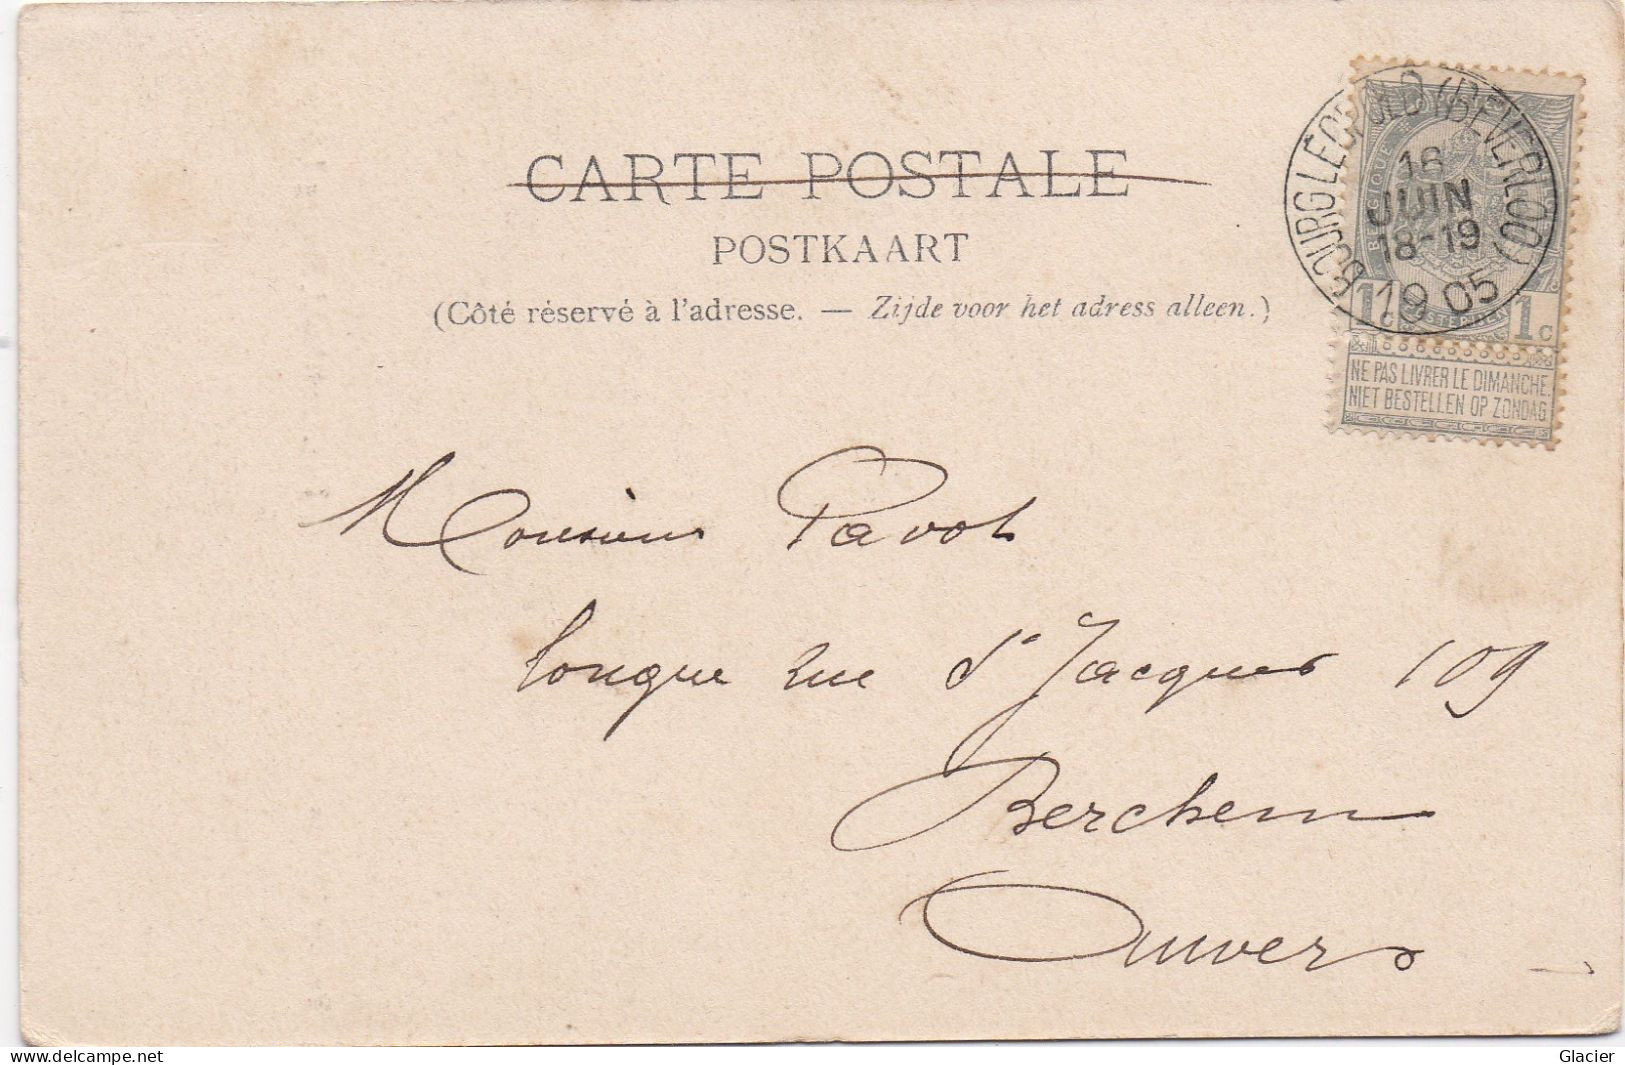 CARTE POSTALE
POSTKAART
(Côté réservé à l'adresse. — Zijde voor het adress alleen.)
BOURG LÉOPOLD (BEVERLOO)
16
JUIN
18-19
1905
BELGIQUE
1c 1c
NE PAS LIVRER LE DIMANCHE.
NIET BESTELLEN OP ZONDAG
Monsieur Pavot
longue rue St Jacques 109
Berchem
Anvers
delcampe.net
Glacier